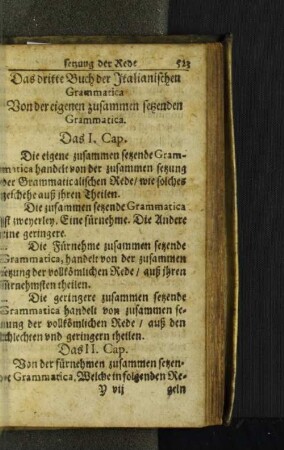 setzung der Rede 523
Das dritte Buch der Italianischen
Grammatica
Von der eigenen zusammen setzenden
Grammatica.
Das I. Cap.
Die eigene zusammen setzende Gram-
matica handelt von der zusammen setzung
der Grammaticalischen Rede/ wie solches
geschehe auß ihren Theilen.
Die zusammen setzende Grammatica
ist zweyerley. Eine fürnehme. Die Andere
eine geringere.
Die Fürnehme zusammen setzende
Grammatica, handelt von der zusammen
setzung der vollkömlichen Rede/ auß ihren
fürnehmsten theilen.
Die geringere zusammen setzende
Grammatica handelt von zusammen se-
tzung der vollkömlichen Rede/ auß den
schlechten vnd geringern theilen.
Das II. Cap.
Von der fürnehmen zusammen setzen-
den Grammatica, Welche in folgenden Re-
Y vij geln